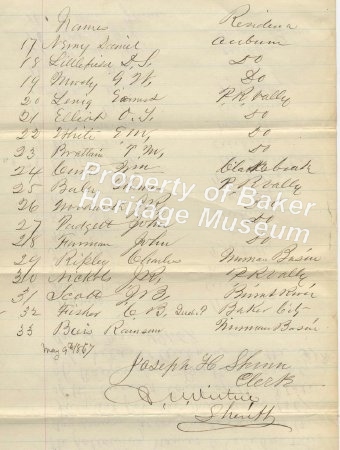 Names Residence
17 Nemy Daniel Auburn
18 Littlefield D. S. Do
19 Moody G. W. Do
20 P. R. Vally
21 Elliott O. T. Do
22 White T M, Do
23 Brattain T. M, Do
24 Jim Clark Creek
25 P. R. Vally
26 Do
27 Padgett John Do
28 Farman John Do
29 Ripley Charles Basin
30 Nichols J. R. P. R Vally
31 Scott J. B. Burnt River
32 Fisher C. B. Baker City
33 Ransom Basin
May 9th 1867
Joseph H Shinn
Clerk
Sheriff
Property of Baker
Heritage Museum